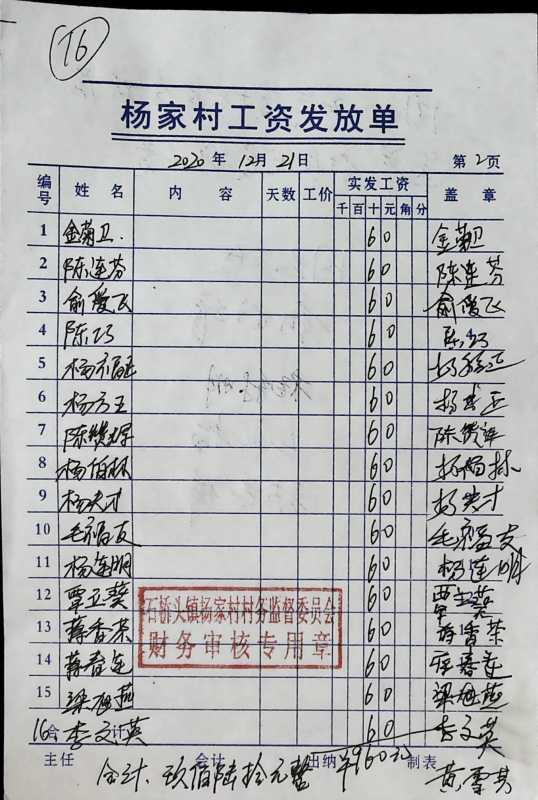 16
杨家村工资发放单
2020年12月21日 第2页
编号 姓名 内容 天数 工价 实发工资 盖章
千 百 十 元 角 分
1 金菊卫 60 金菊卫
2 陈连芬 60 陈连芬
3 俞爱飞 60 俞爱飞
4 陈巧 60 陈巧
5 杨福 60
6 杨方 60 杨
7 陈 60 陈
8 杨伯林 60 杨
9 杨尖才 60 杨尖才
10 毛福友 60 毛福友
11 杨连明 60 杨连明
12 覃亚葵 60 覃
13 蒋香荣 60 蒋香荣
14 蒋春连 60 蒋春连
15 梁旭燕 60 梁旭燕
16 合计 李文英 60 李文英
石桥头镇杨家村村务监督委员会
财务审核专用章
主任 会计 出纳 制表
合计:玖佰陆拾元整 ¥960元 黄雪